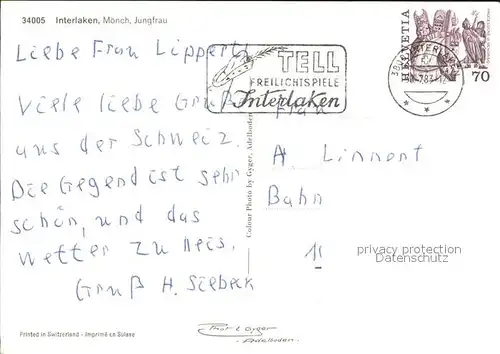 34005 Interlaken, Mönch, Jungfrau
Liebe Frau Lippert
Viele liebe Grüße
aus der Schweiz.
Die Gegend ist sehr
schön, und das
Wetter zu heis.
Gruß H. Silbeck
TELL
FREILICHTSPIELE
Interlaken
HELVETIA
70
Frau
A. Linnert
Bahn
15
privacy protection
Datenschutz
Colour Photo by Gyger, Adelboden
Printed in Switzerland - Imprimé en Suisse
Gyger
Adelboden